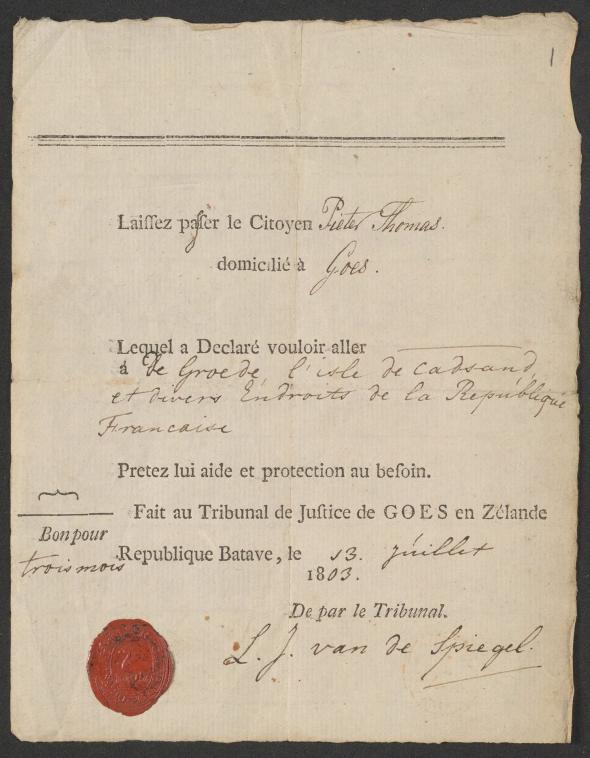 1
Laiſſez paſſer le Citoyen Pieter Thomas.
domicilié à Goes.
Lequel a Declaré vouloir aller
á De Groede, l'isle de Cadsand,
et divers Endroits de la Republique
Francaise
Pretez lui aide et protection au beſoin.
Fait au Tribunal de Juſtice de GOES en Zélande
Bon pour
trois mois
Republique Batave, le 13. Juillet
1803.
De par le Tribunal.
L. J. van de Spiegel.